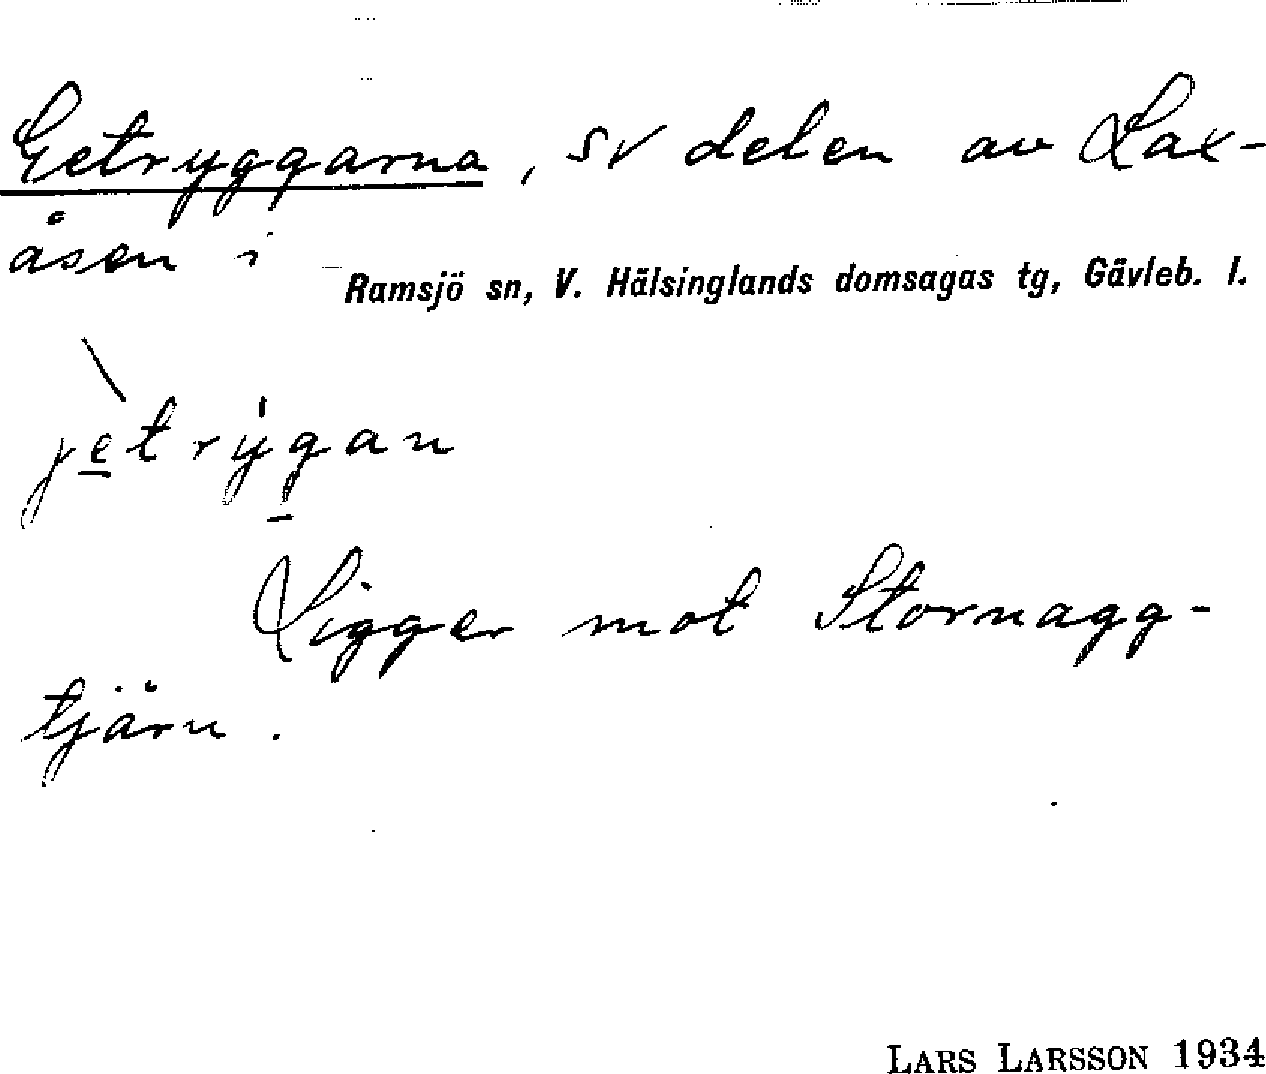 Getryggarna, sv delen av Lax-
åsen i
Ramsjö sn, V. Hälsinglands domsagas tg, Gävleb. l.
jètrýgan
Ligger mot Stornagg-
tjärn.
LARS LARSSON 1934